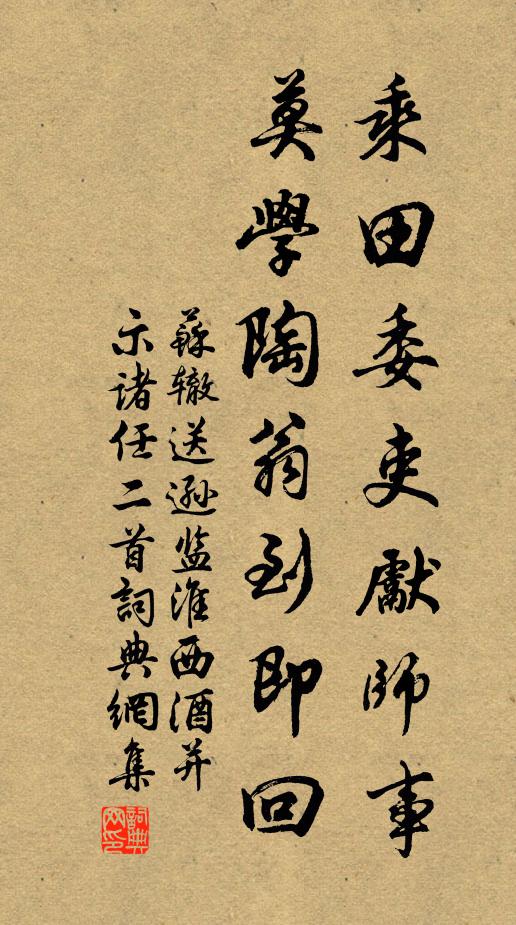 乘田委吏獻師事
莫學陶翁到即回
蘇辙送遜监淮西酒并
示诸任二首詞典網集
詞典网印